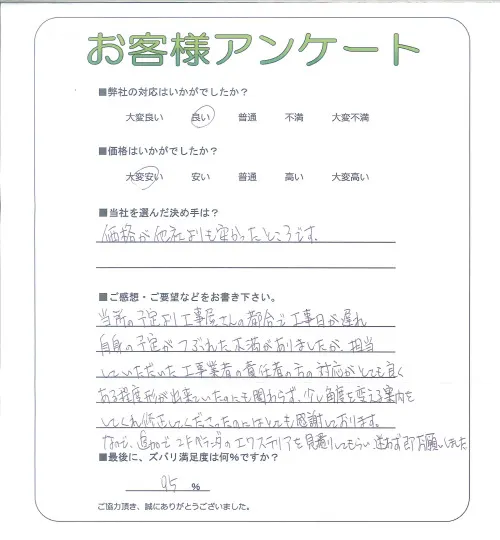 お客様アンケート
■弊社の対応はいかがでしたか？
大変良い 良い 普通 不満 大変不満
■価格はいかがでしたか？
大変安い 安い 普通 高い 大変高い
■当社を選んだ決め手は？
価格が他社よりも安かったところです。
■ご感想・ご要望などをお書き下さい。
当所の予定より工事屋さんの都合で工事日が遅れ
自身の予定がつぶれた不満がありましたが、担当
していただいた工事業者の責任者の方の対応がとても良く
ある程度形が出来ていたのにも関わらず、少し角度を変える案内を
してくれ修正してくださったのにはとても感謝しております。
なので、追加でユニトベランダのエクステリアを見積りしてもらい迷わず即お願いしました
■最後に、ズバリ満足度は何%ですか？
95 %
ご協力頂き、誠にありがとうございました。